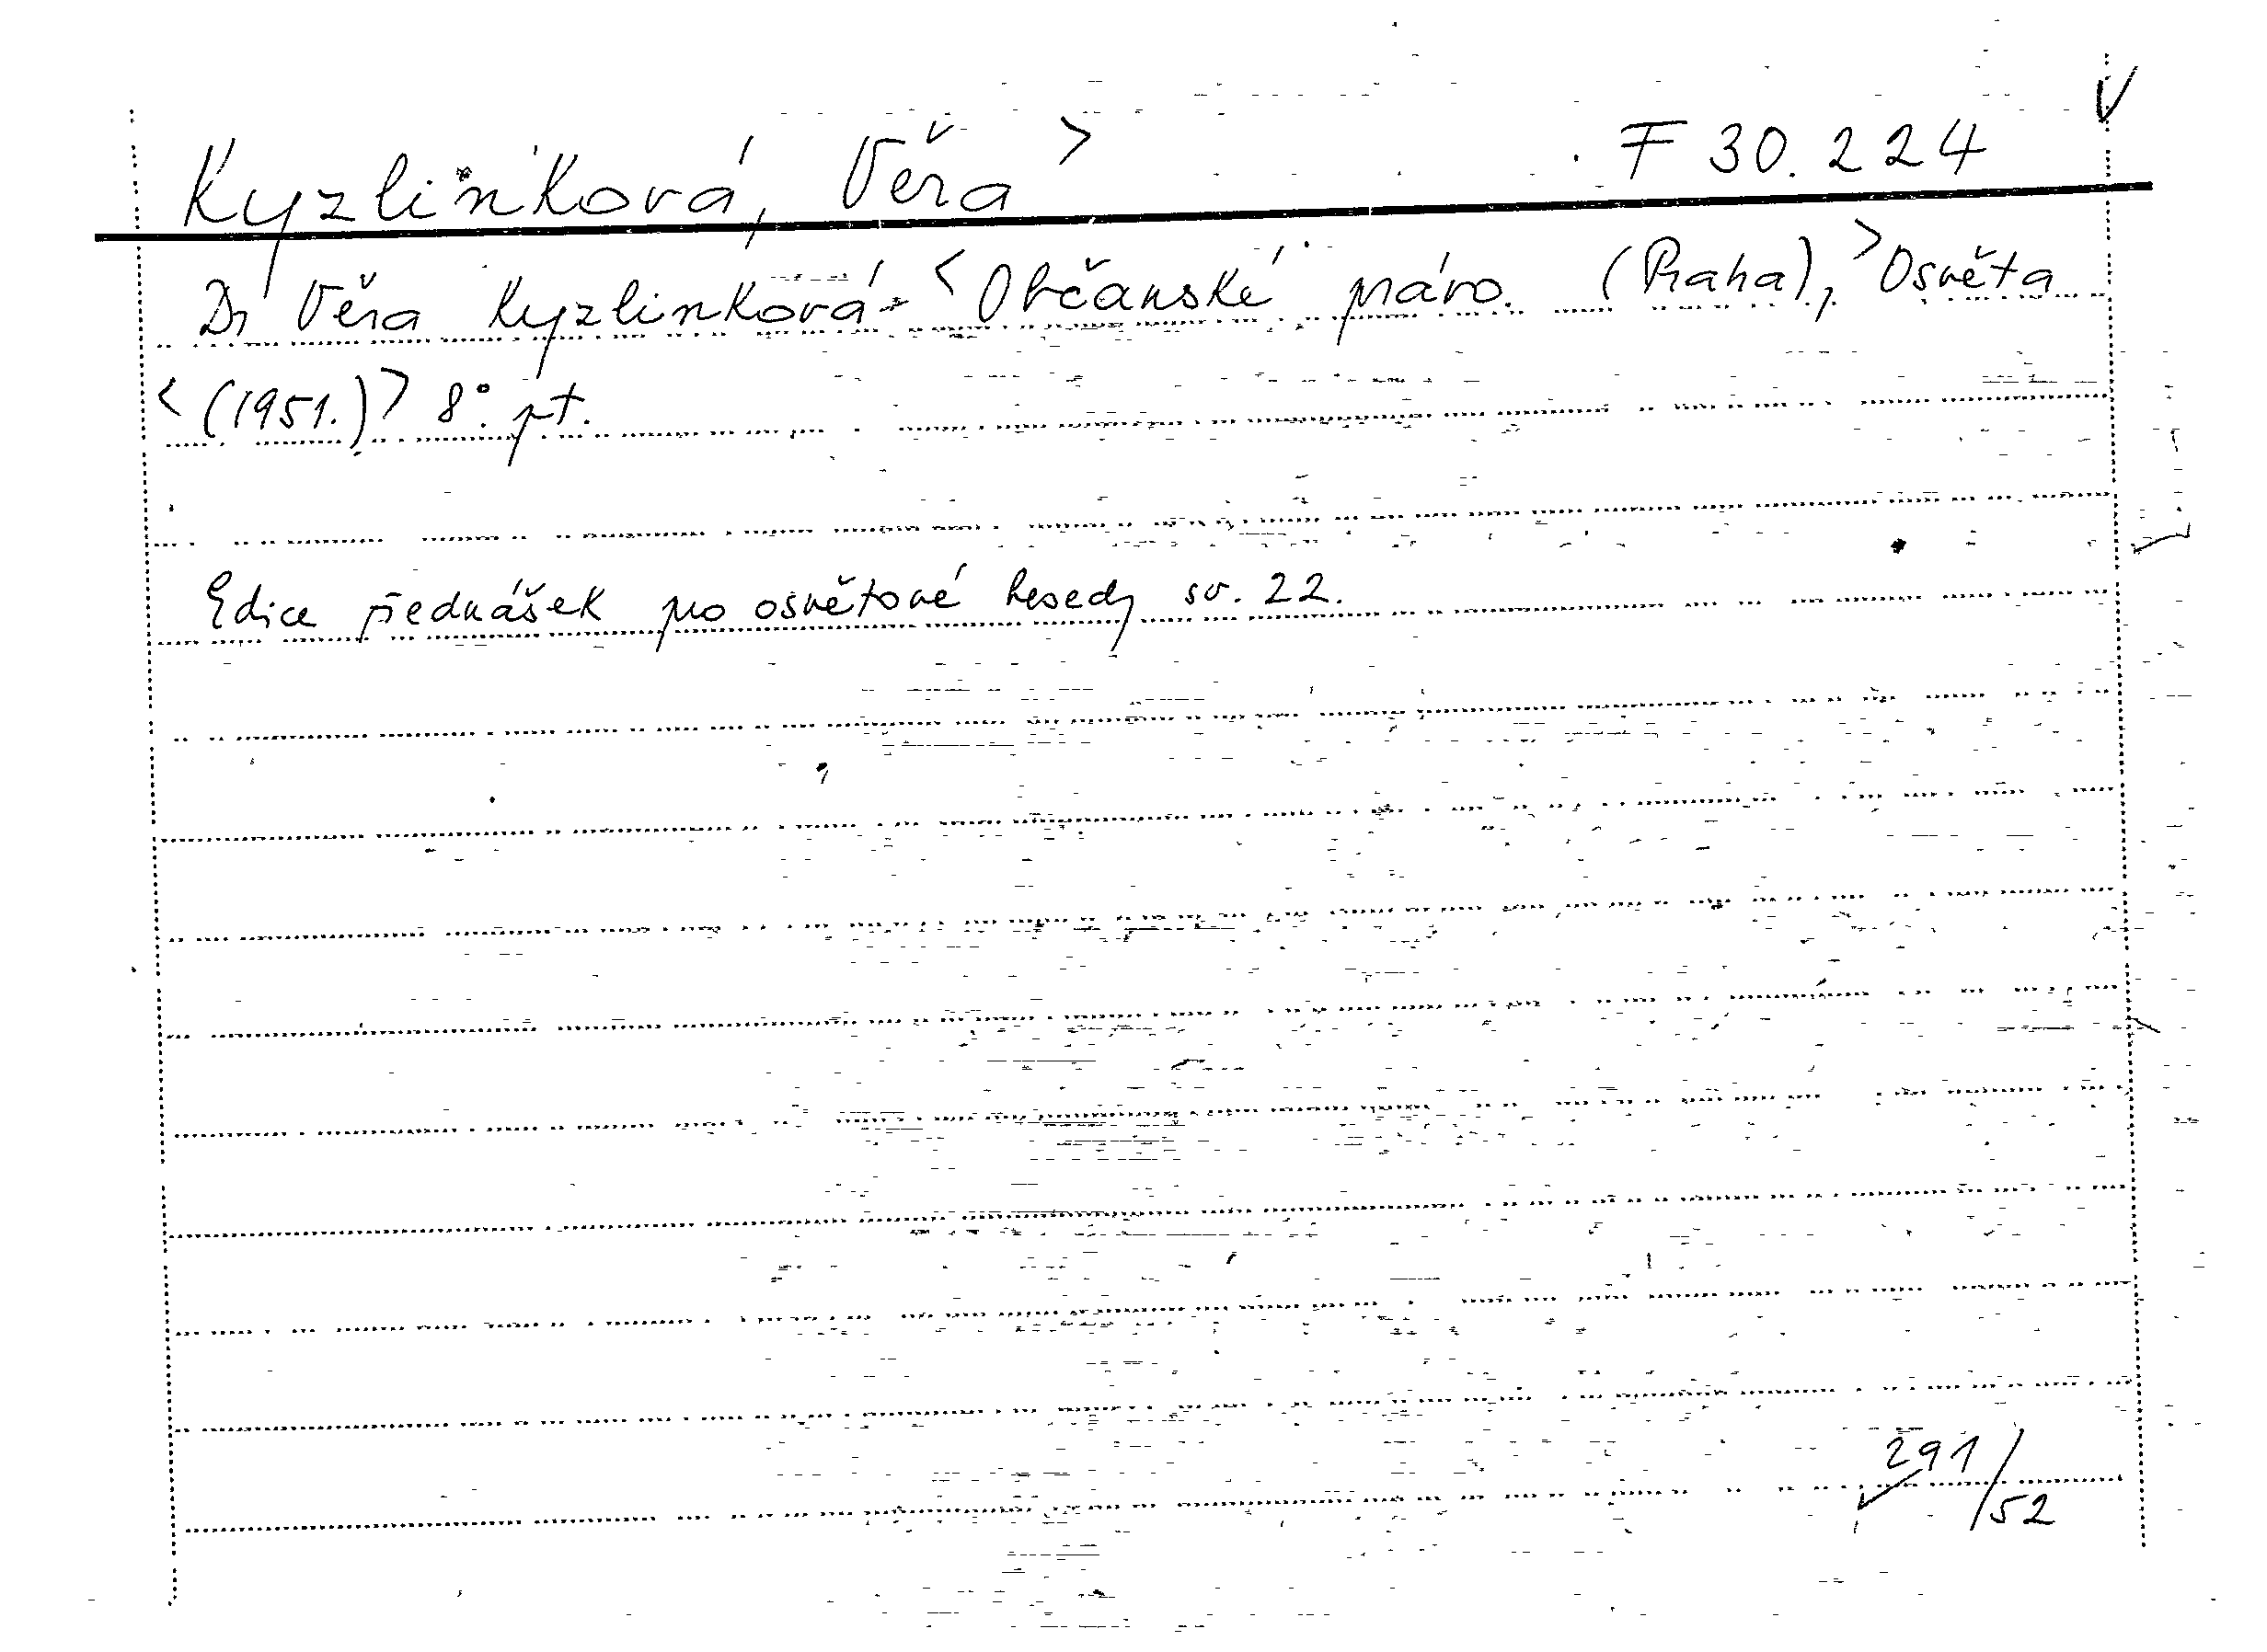 Kyzlinková, Věra > F 30.224
Dr Věra Kyzlinková- < Občanské právo. (Praha), > Osvěta
< (1951.) > 8°. pt.
Edice přednášek pro osvětové besedy sv. 22.
291/52